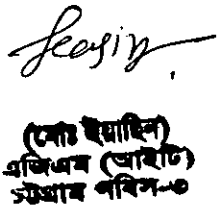 (মোঃ ইয়াছিন)
এজিএম (আইটি)
চট্টগ্রাম পবিস-৩